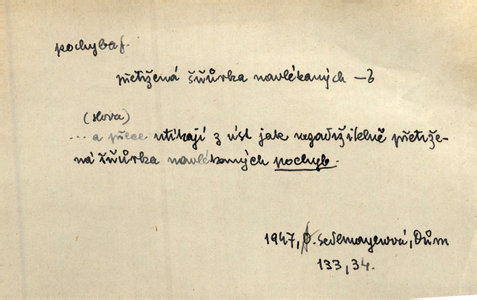 pochyba f.
přetržená šňůrka navlékaných –b
(slova)
... a přece utíkají z úst jak nezadržitelně přetrže-
ná šňůrka navlékaných pochyb.
1947, Sedlmayerová, Dům
133, 34.